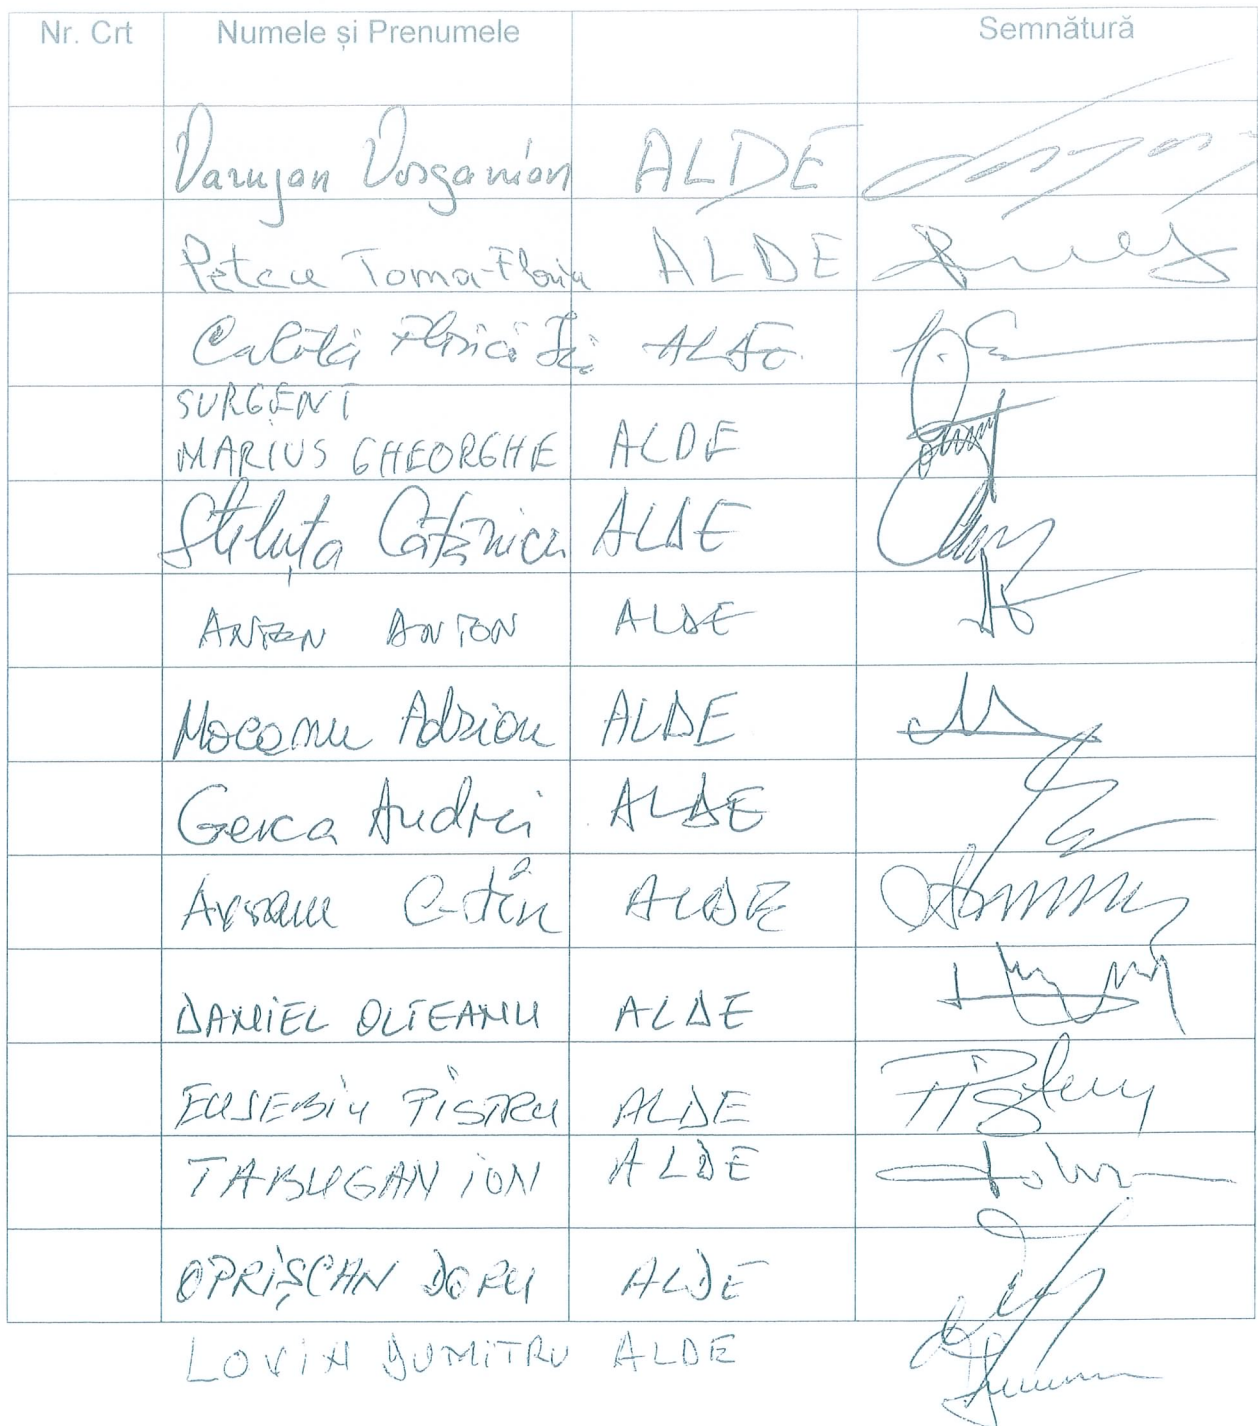 Nr. Crt Numele și Prenumele Semnătură
Varujan Vosganian ALDE
Petcu Toma-Florin ALDE
Calotă Florică Ică ALDE
SURGENT
MARIUS GHEORGHE ALDE
Steluța Cătănicu ALDE
ANTON ANTON ALDE
Mocanu Adrian ALDE
Gerea Andrei ALDE
Avram C-tin ALDE
DANIEL OLTEANU ALDE
EUSEBIU PISTRU ALDE
TABUGAN ION ALDE
OPRIȘCAN DORU ALDE
LOVIN DUMITRU ALDE